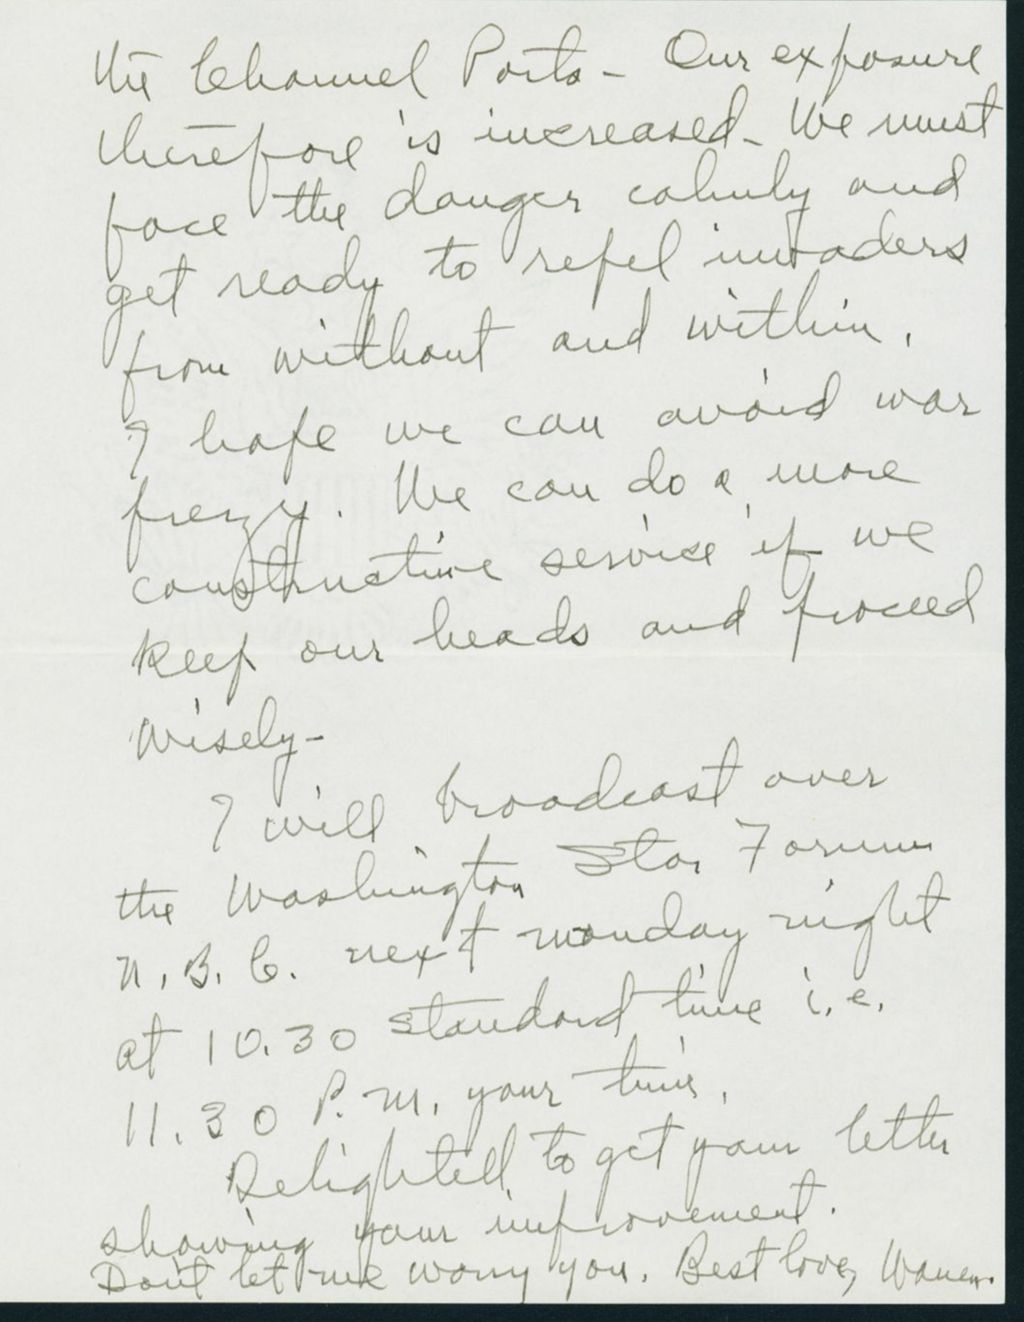 the Channel Ports - Our exposure
therefore is increased - We must
face the danger calmly and
get ready to repel invaders
from without and within.
I hope we can avoid war
frenzy. We can do a more
constructive service if we
keep our heads and proceed
wisely -
I will broadcast over
the Washington Star Forum
N.B.C. next monday night
at 10.30 standard time i.e.
11.30 P.M. your time.
Delighted to get your letter
showing your improvement.
Don't let me worry you. Best love, Warren.